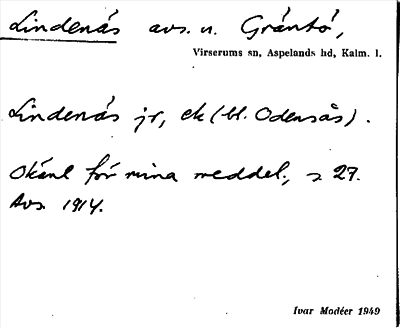 Lindenäs avs. u. Gräntö,
Virserums sn, Aspelands hd, Kalm. l.
Lindenäs jr, ek (bl. Odensås).
Okänt för mina meddel., s 27.
Avs. 1914.
Ivar Modéer 1949